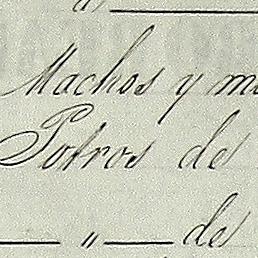 Machos y
Potros de
" de